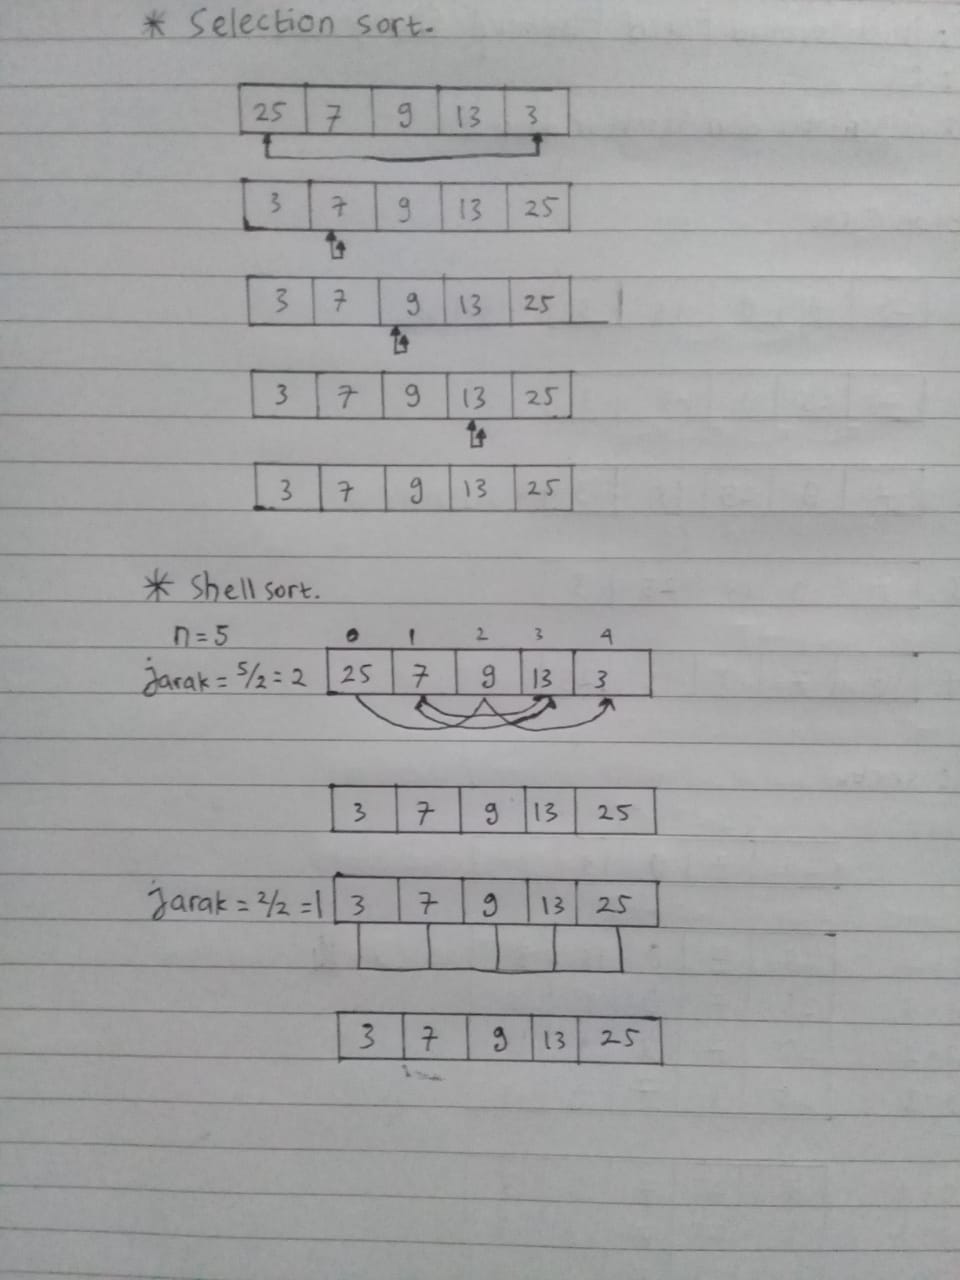 * Selection sort.
25 7 9 13 3
3 7 9 13 25
3 7 9 13 25
3 7 9 13 25
3 7 9 13 25
* Shell sort.
n = 5 0 1 2 3 4
jarak = 5/2 = 2 25 7 9 13 3
3 7 9 13 25
jarak = 2/2 = 1 3 7 9 13 25
3 7 9 13 25